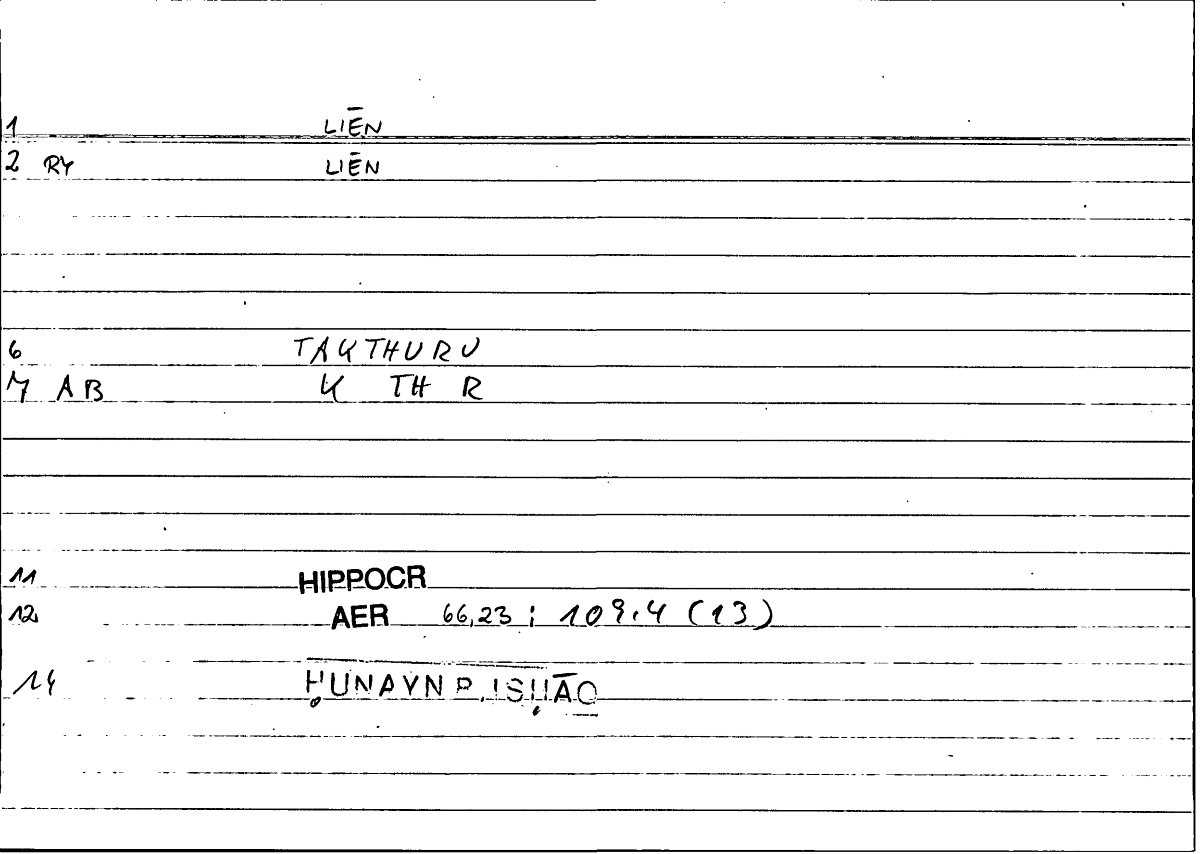 1 LIĒN
2 RY LIĒN
6 TAKTHURU
7 AB K TH R
11 HIPPOCR
12 AER 66,23; 109,4 (13)
14 ḤUNAYN B. ISḤĀQ